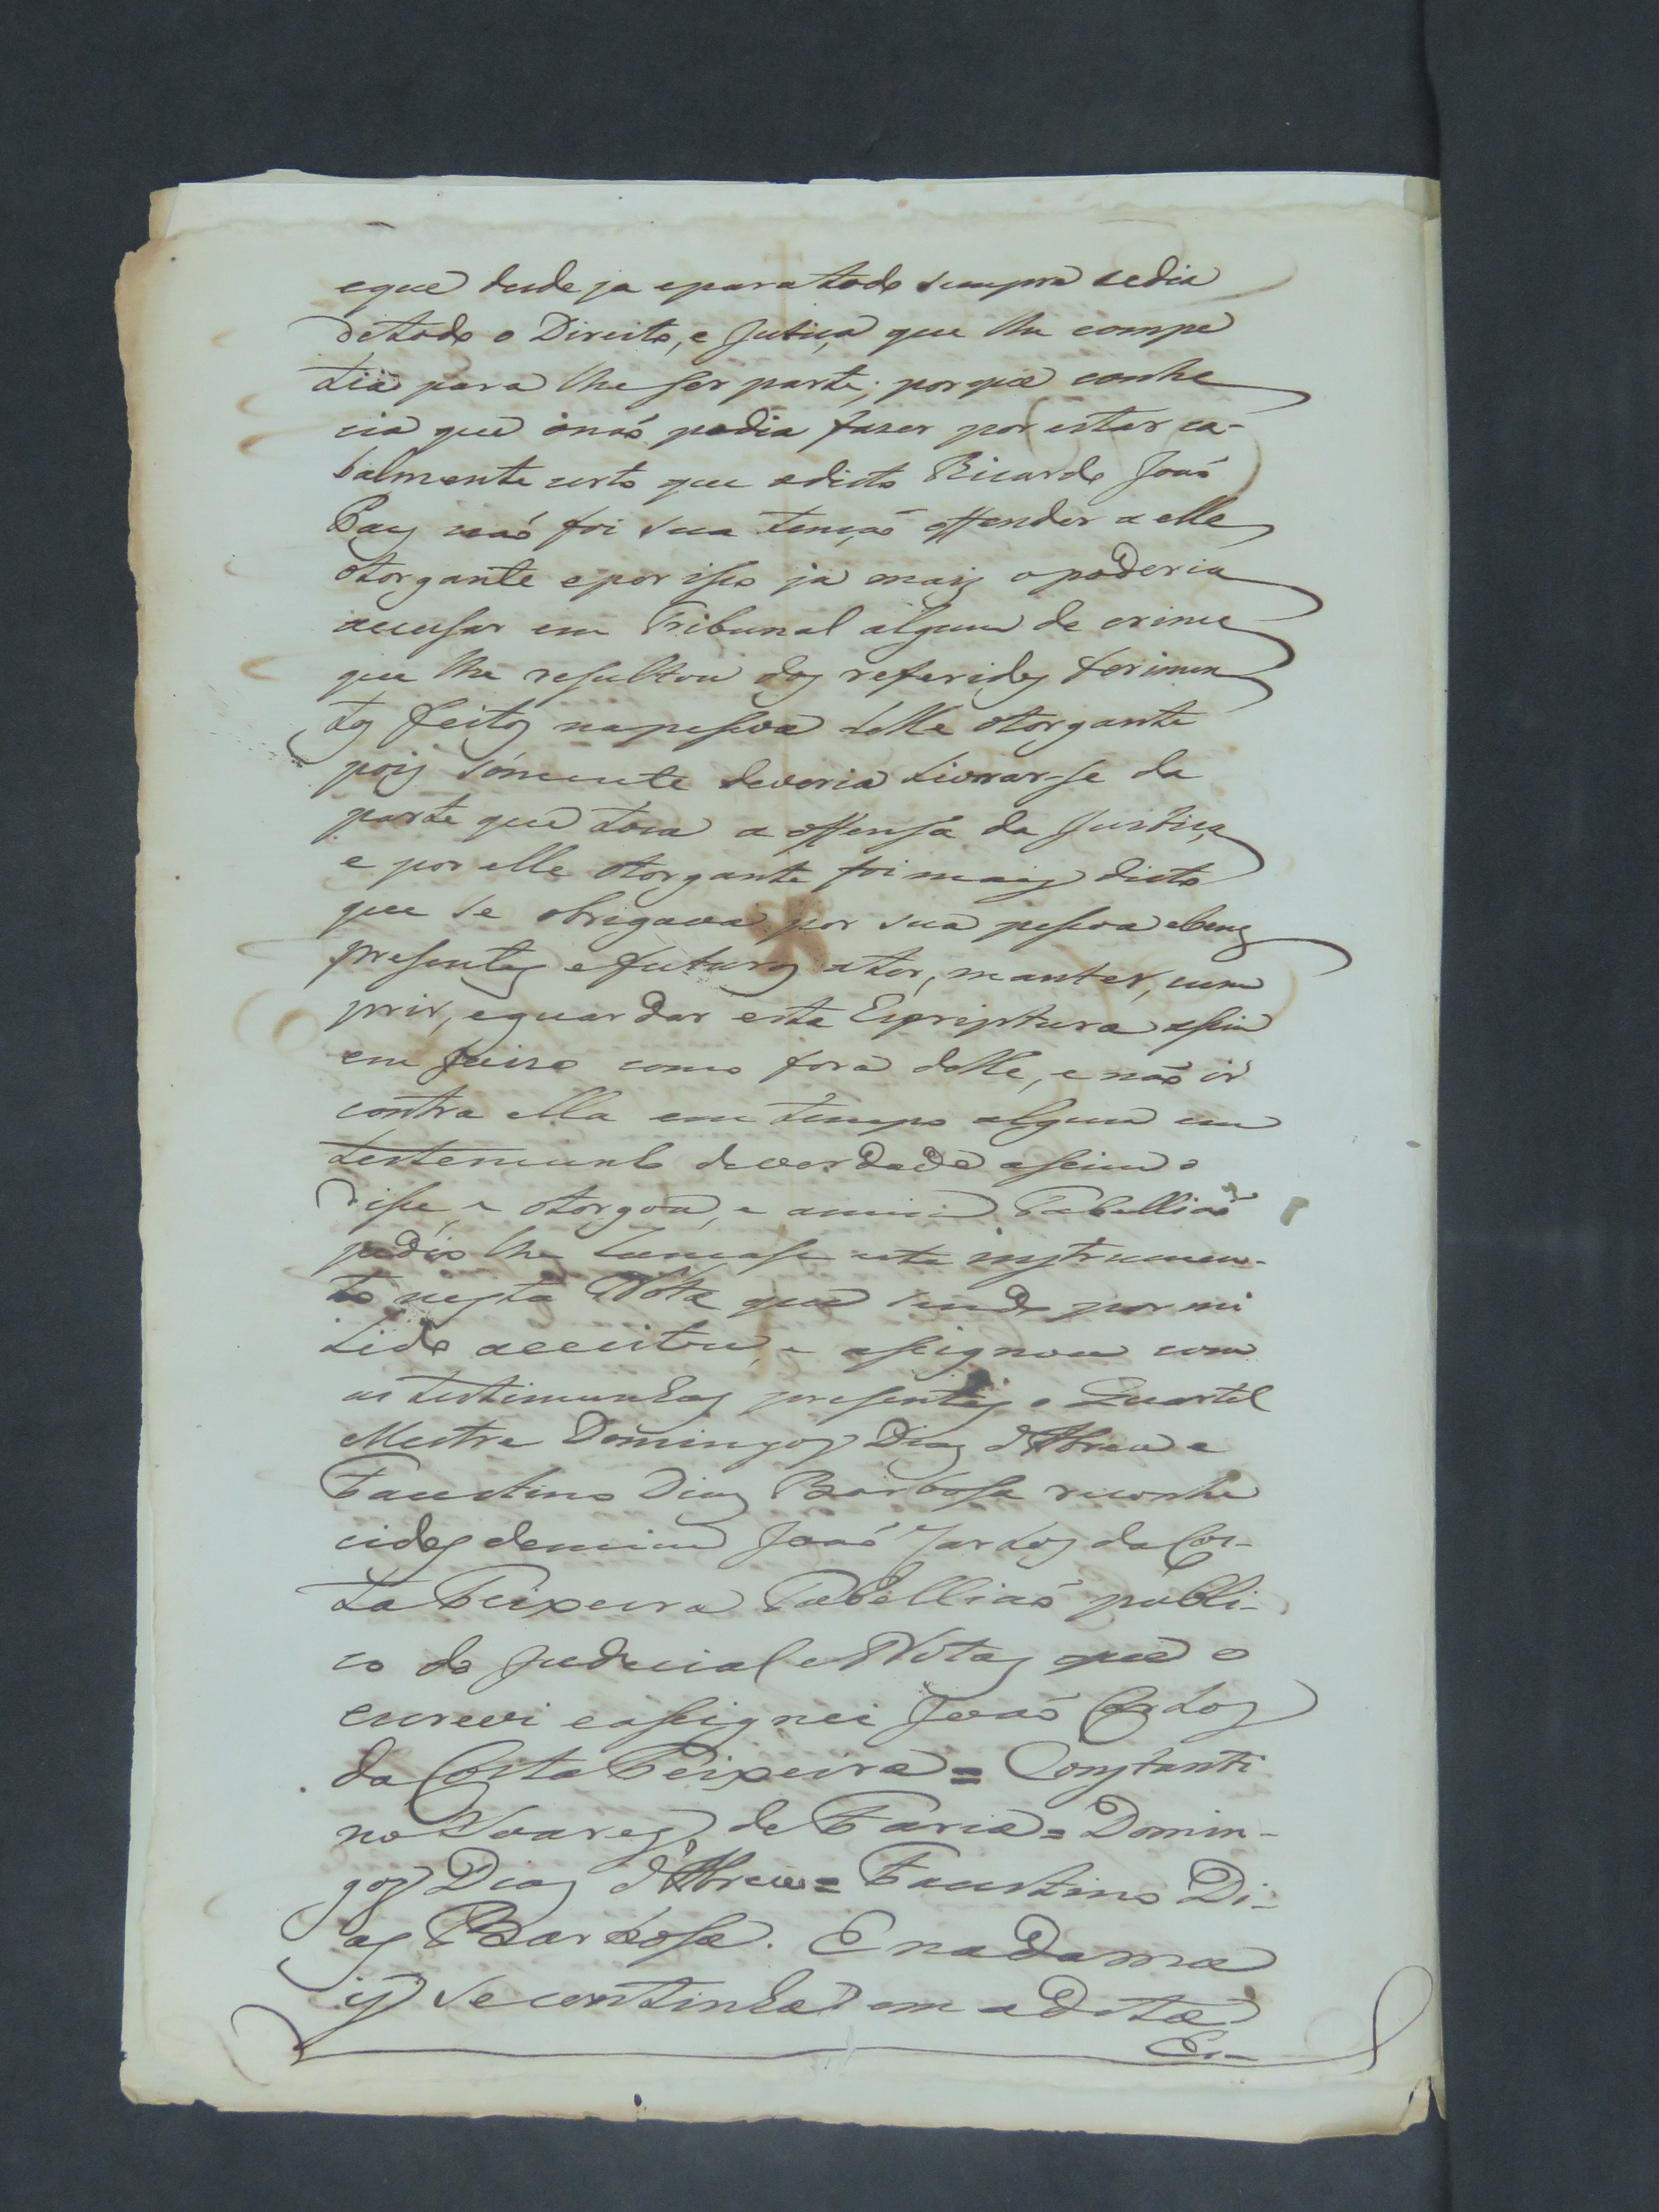 eque desde ja eparatodo sempre cedia
detodo o Direito, e Jutiça que lhe compe
tia para lhe ser parte; porque conhe
cia que onaõ podia fazer por estar ca-
balmente certo que odicto Ricardo Joaõ
Pay naõ foi sua tençaõ offender a elle
otorgante epor isso ja mais opoderia
accusar em Tribunal algum de crime
que lhe resultou dos referidos ferimen
tos feitos napessoa delle otorgante
pois sómente deveria Livrar-se da
parte que toca a offensa da Justiça,
e por elle otorgante foi mais dicto
que se obrigava por sua pessoa ebens
presentes efuturos ater, manter, cum
prir, eguardar esta Escriptura assim
em Juizo como fora delle, e naõ ir
contra ella em tempo algum em
testemunho deverdade assim o
disse, e otorgou, e amim Tabelliaõ
pedio lhe Lancasse este instrumen-
to nesta Nota que sendo por mi
Lido acceitou, e assignou com
as testimunhas presentes o Quartel
Mestre Domingos Dias d'Abreu e
Faustino Dias Barbosa reconhe
cidos demim Joaõ Carlos da Cos-
ta Teixeira Tabelliaõ publi-
co do Judicial eNotas que o
escrevi eassignei Joaõ Carlos
da Costa Teixeira = Constanti
no Soares de Faria = Domin-
gos Dias d'Abreu = Faustino Di-
as Barbosa. Enadama
is secontinha em adita
Es-